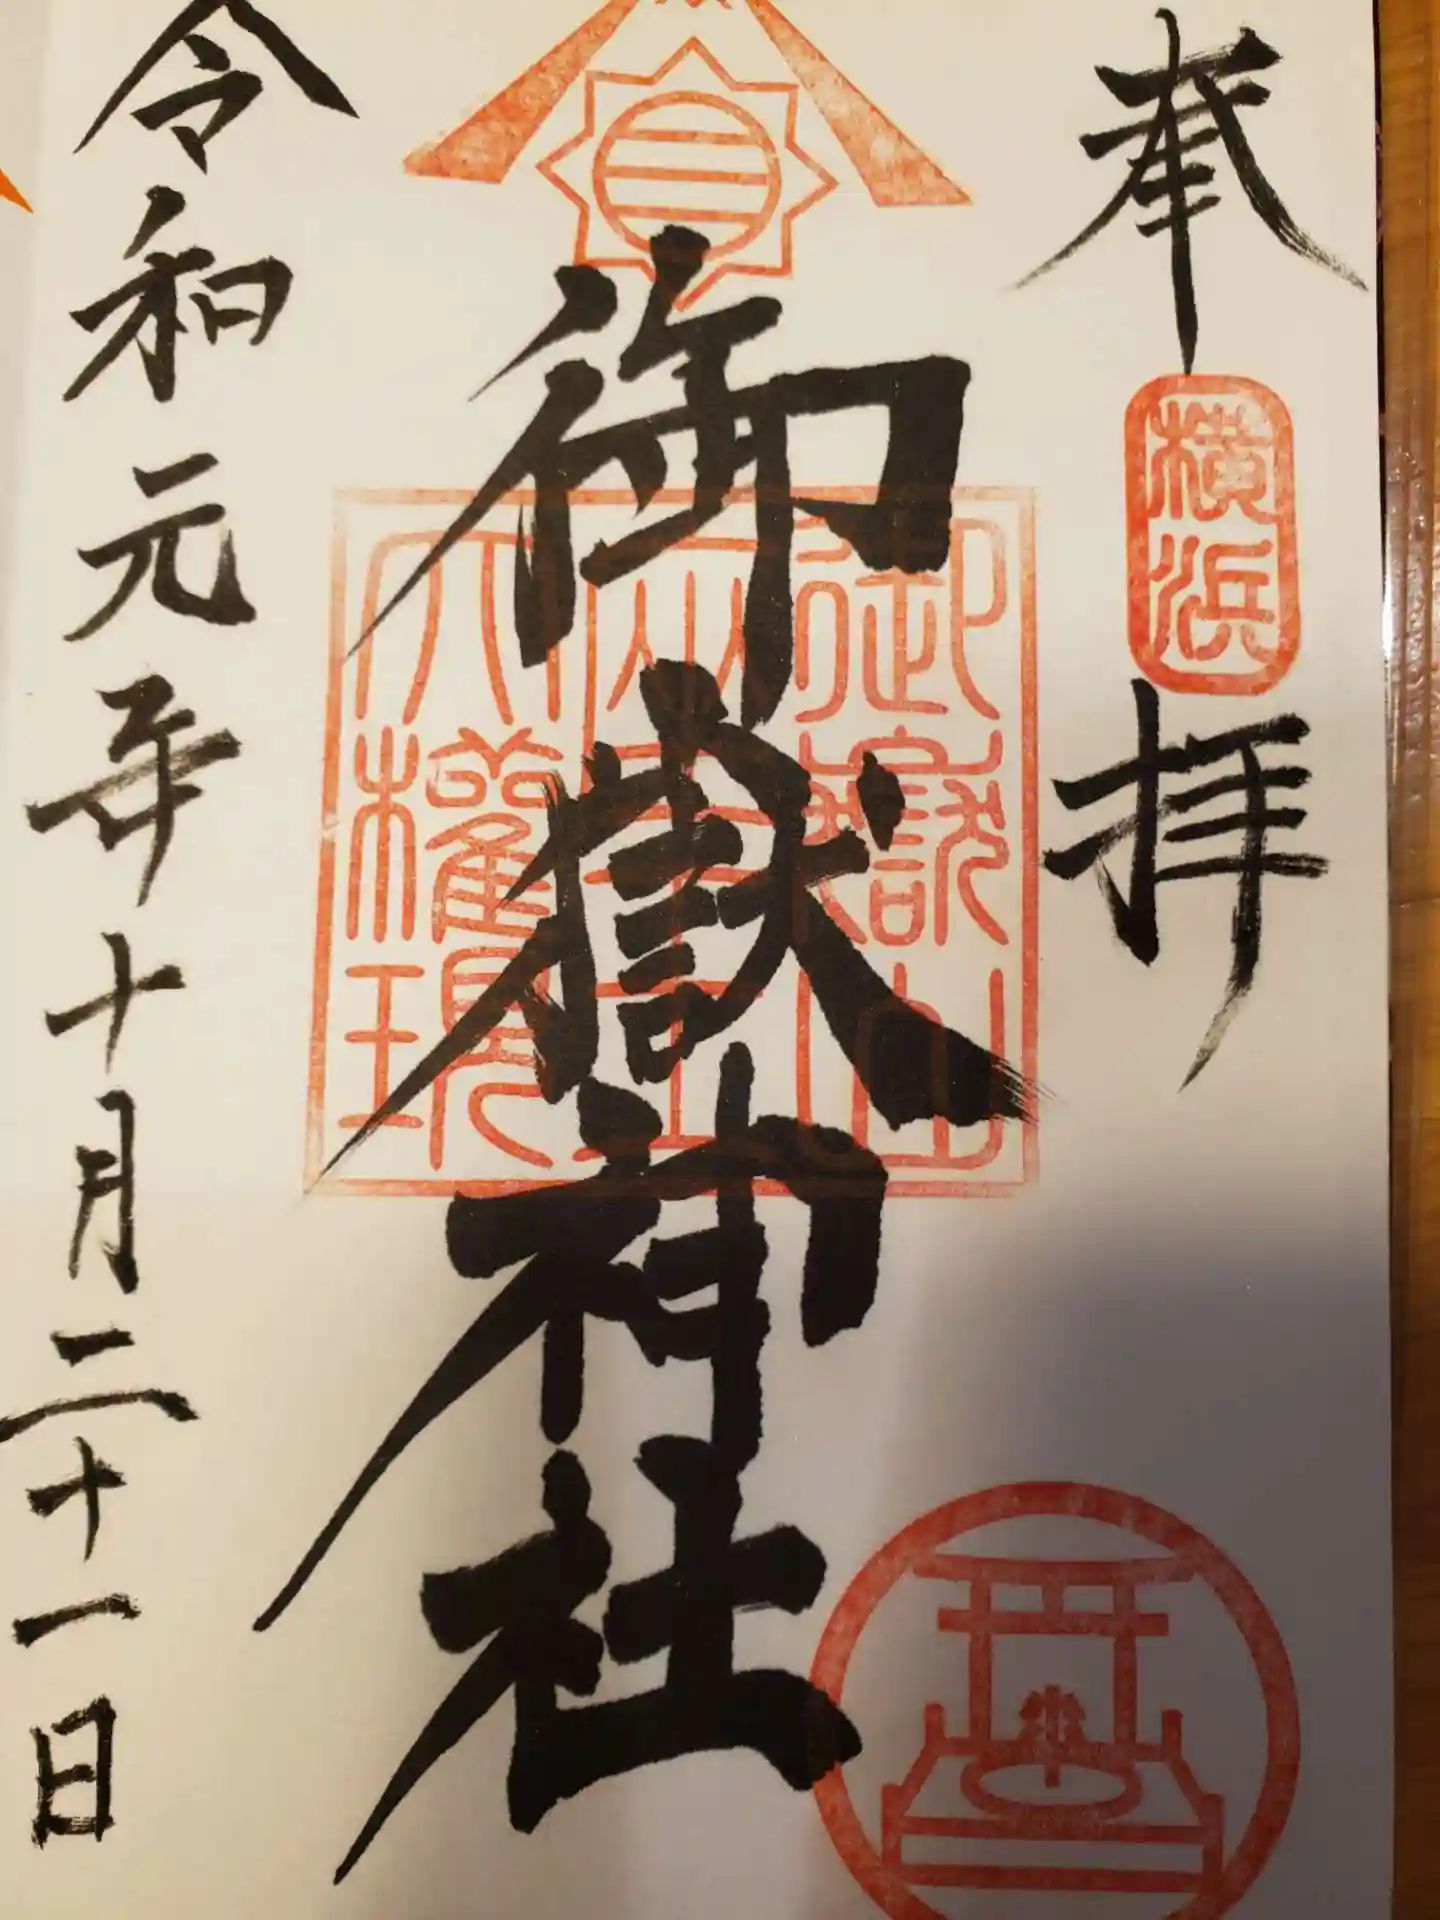 奉拝
横浜
御嶽神社
御嶽山
大權現
令和元年十月二十一日